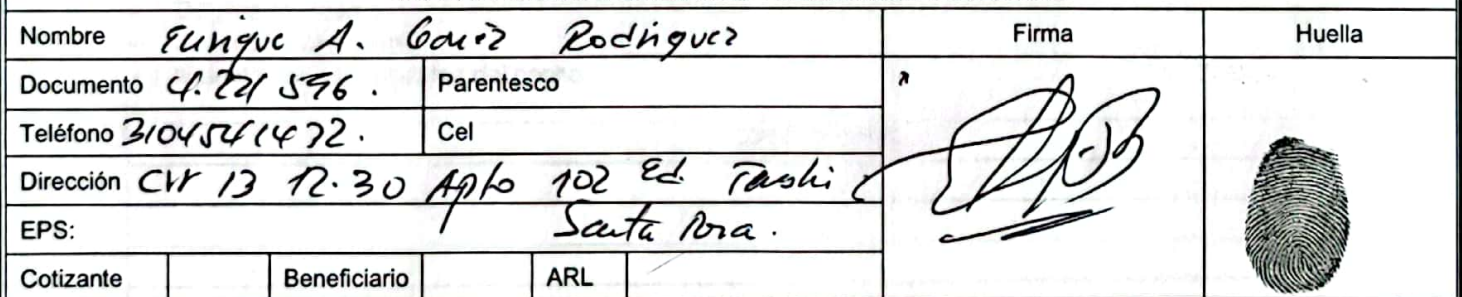 Nombre Enrique A. Gómez Rodriguez Firma Huella
Documento 4.221 596. Parentesco
Teléfono Cel
Dirección Crr 13 12.30 Apto 102 Ed.
EPS: Santa Rosa.
Cotizante Beneficiario ARL